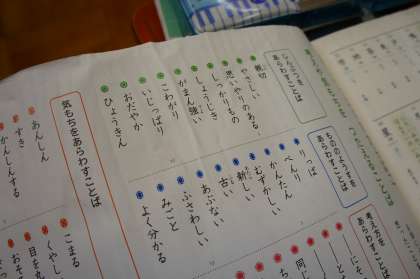 じんぶつを
あらわすことば
親切
やさしい
思いやりのある
しっかりもの
しょうじき
がまん強い
こわがり
いじっぱり
おだやか
ひょうきん
もののようすを
あらわすことば
りっぱ
べんり
かんたん
むずかしい
新しい
古い
あぶない
ふさわしい
みごと
よく分かる
気もちをあらわすことば
あんしん
すき
かんしんする
こまる
くやしい
考えを
あらわすことば